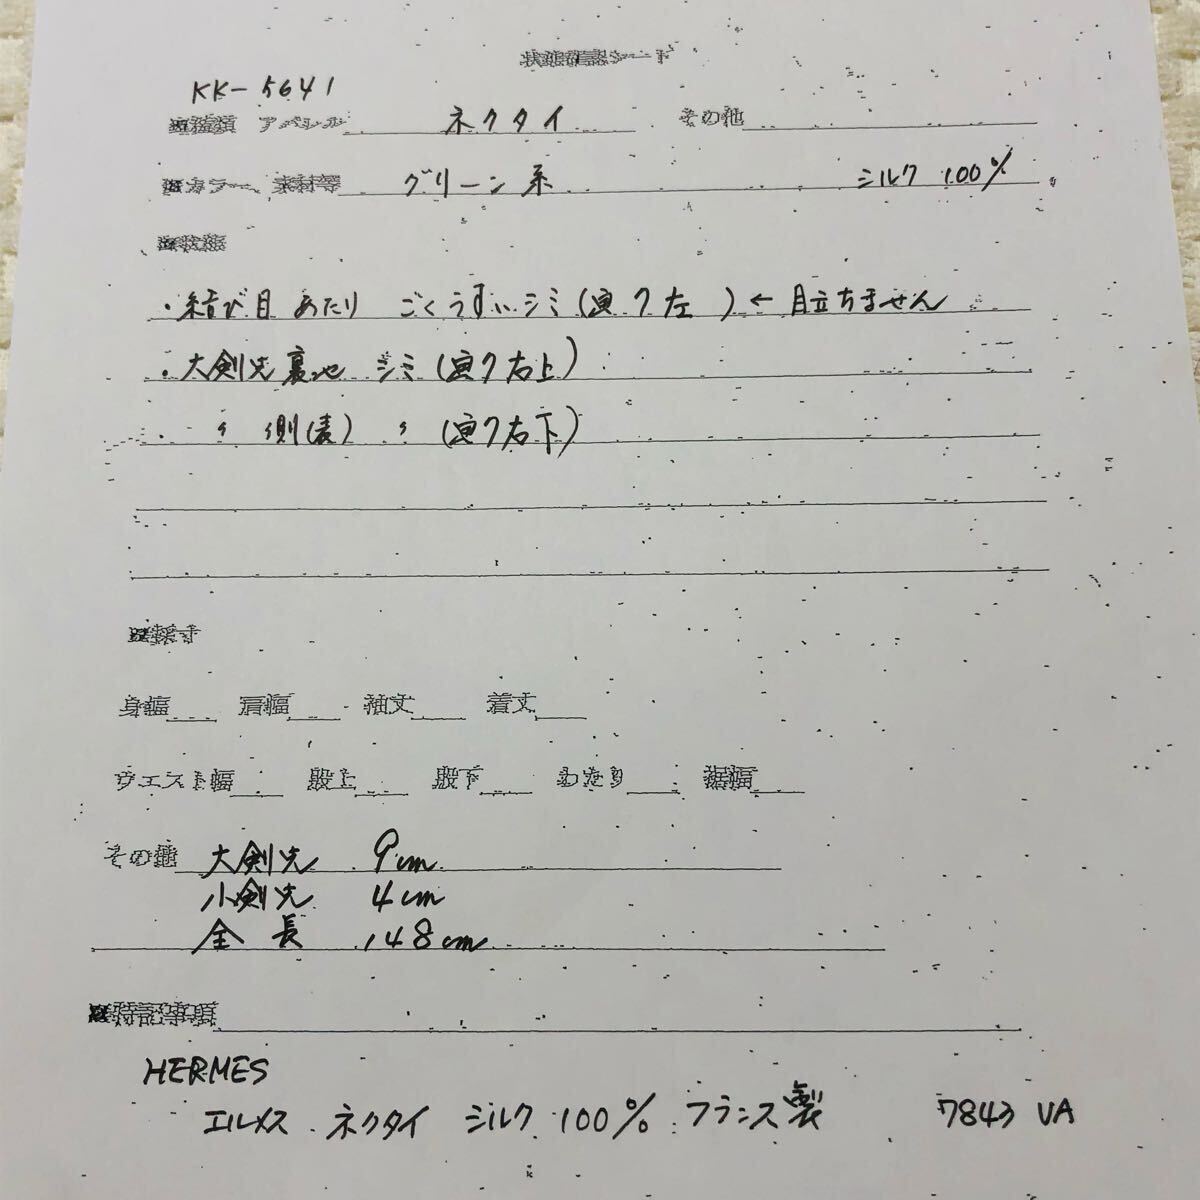 状態確認シート
KK-5641
■種類 アパレル ネクタイ その他
■カラー、素材等 グリーン系 シルク 100%
■状態
・結び目 あたり ごくうすいシミ(画ク左 )← 目立ちません
・大剣先裏地 シミ(画ク右上)
・ 〃 側(表) 〃 (画ク右下)
■採寸
身幅 肩幅 袖丈 着丈
ウエスト幅 股上 股下 わたり 裾幅
その他 大剣先 9cm
小剣先 4cm
全長 148cm
■特記事項
HERMES
エルメス ネクタイ シルク 100% フランス製 7843 UA